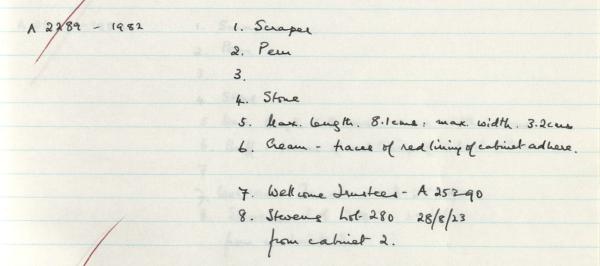 A 2289 - 1982 1. Scraper
2. Peru
3.
4. Stone
5. Max. length. 8.1cms, max. width. 3.2cms
6. Cream - traces of red lining of cabinet adhere.
7. Wellcome Trustees - A 25290
8. Stevens Lot 280 28/8/23
from cabinet 2.